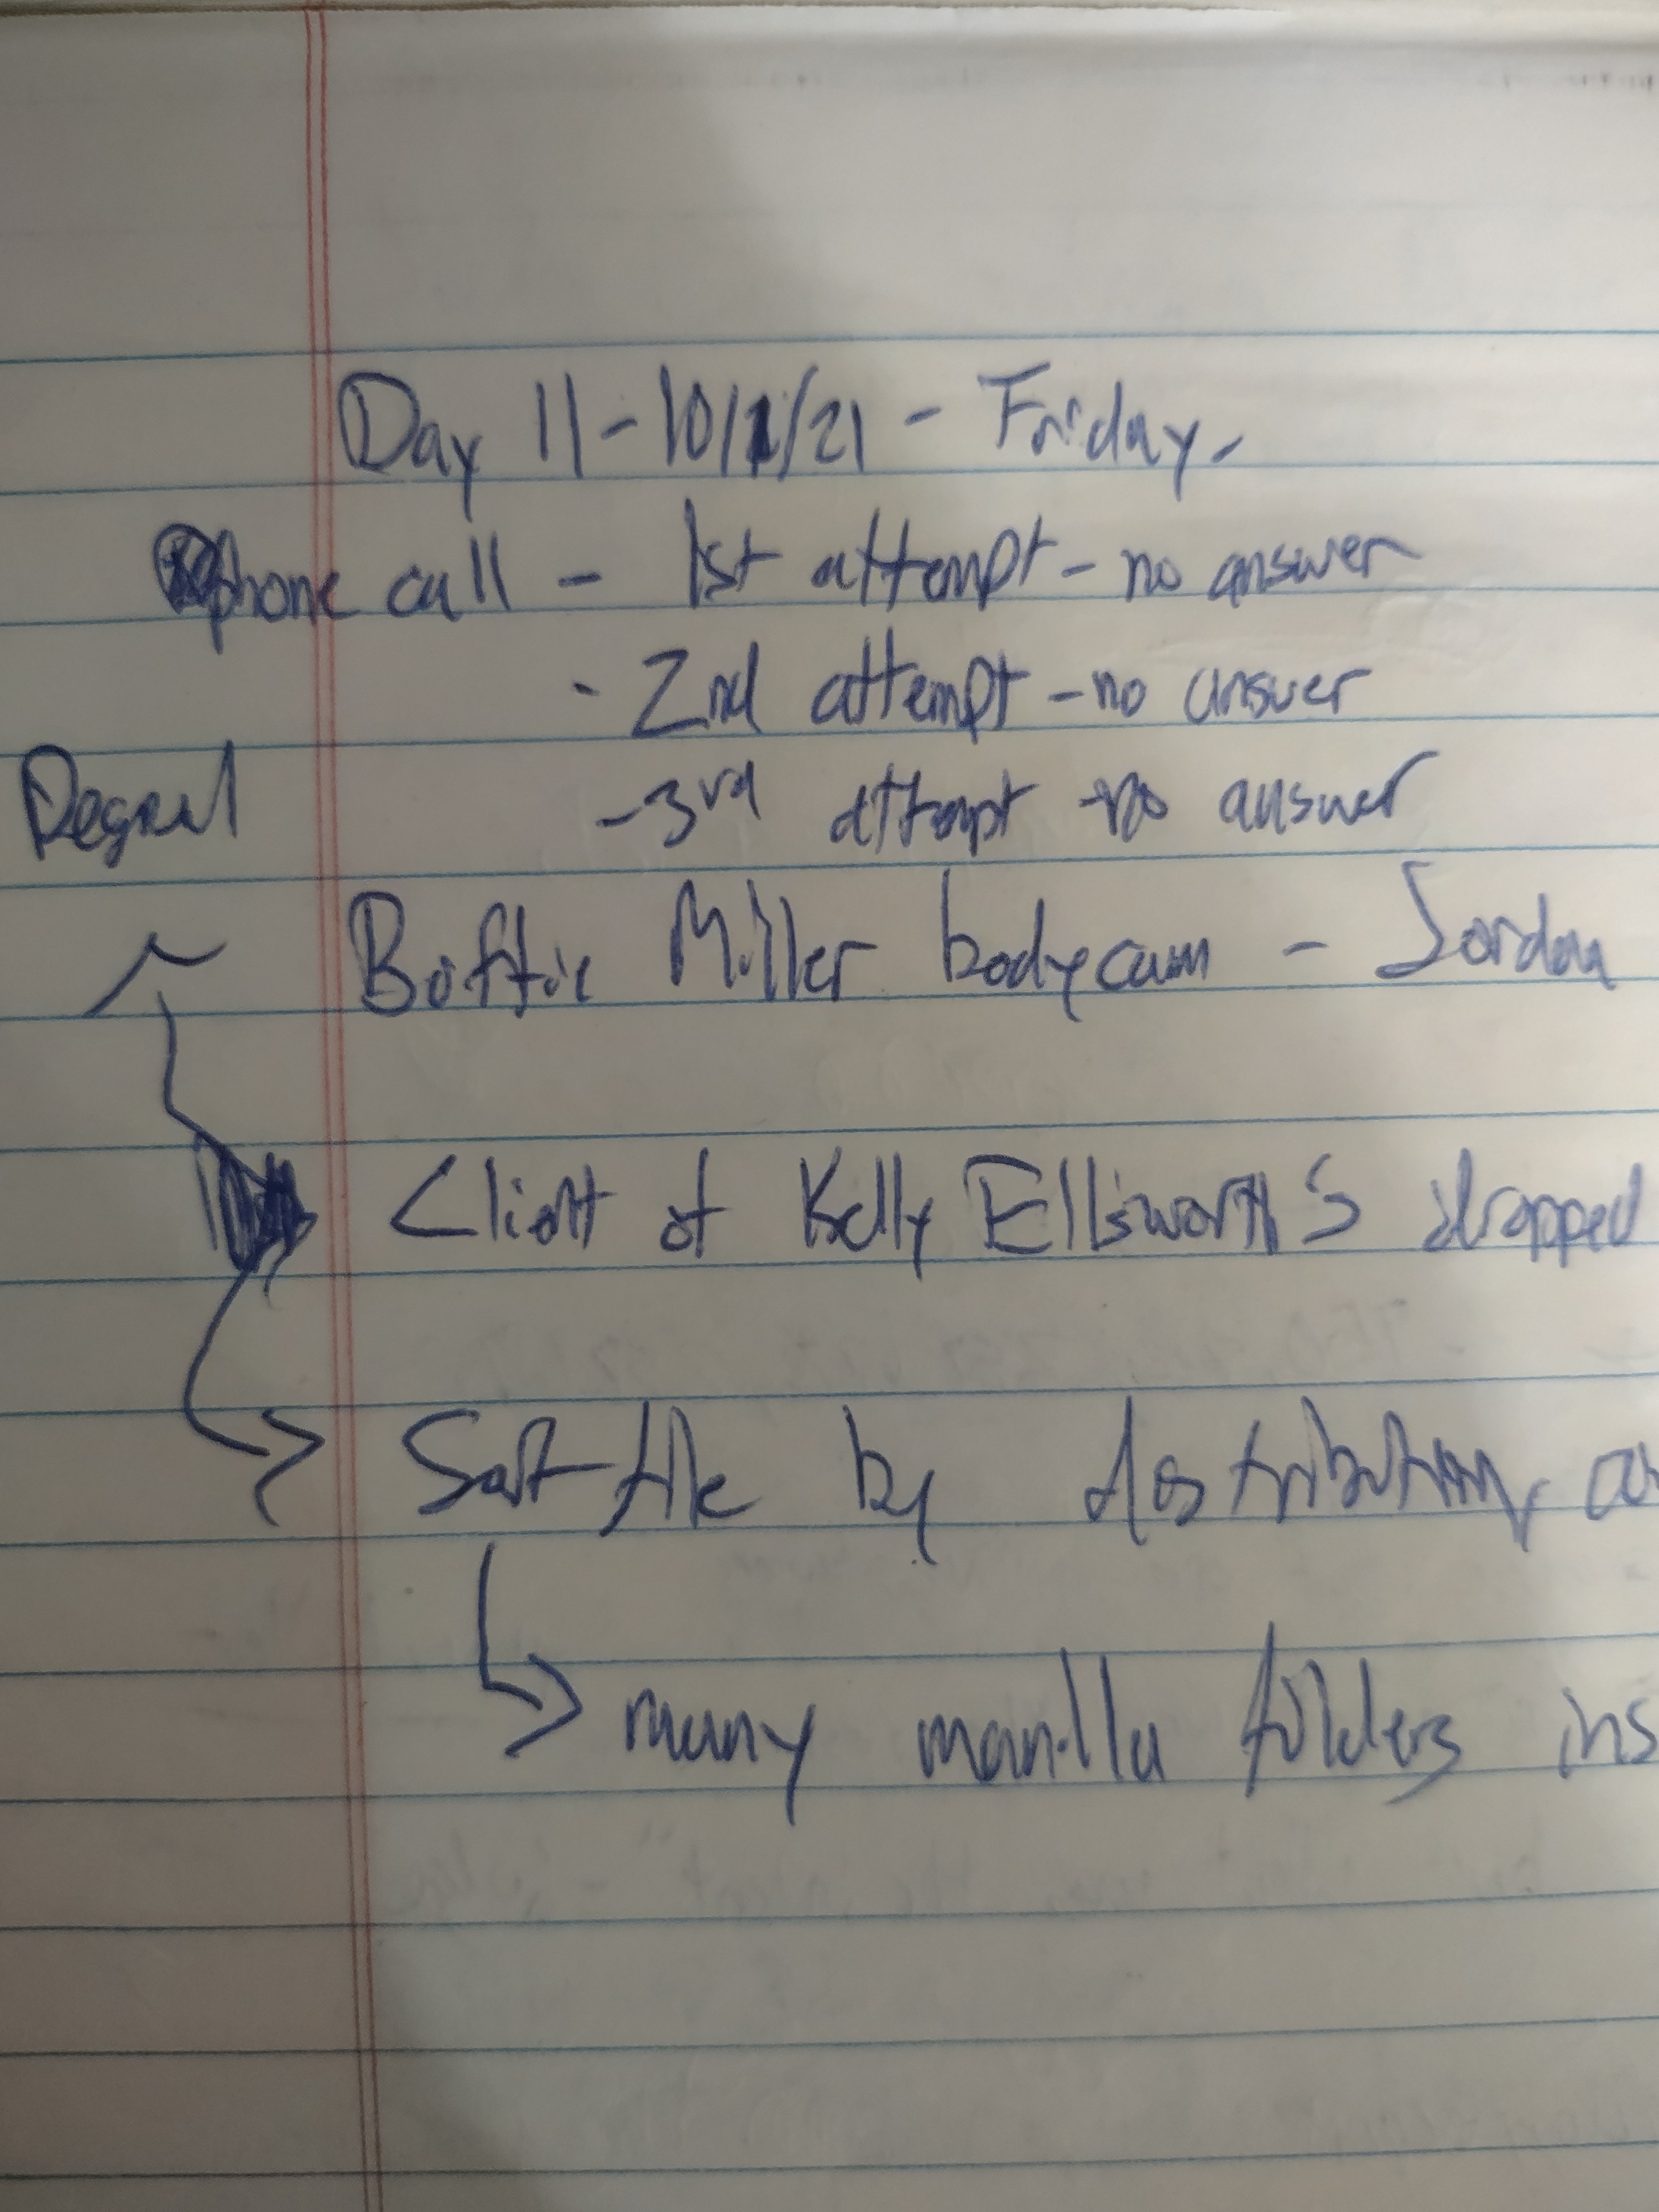 Day 11 - 10/1/21 - Friday.
phone call - 1st attempt - no answer
- 2nd attempt - no answer
- 3rd attempt - no answer
Miller bodycam - Jordan
Client of Kelly Ellsworth's dropped
file by distribution,
many manilla folders ins